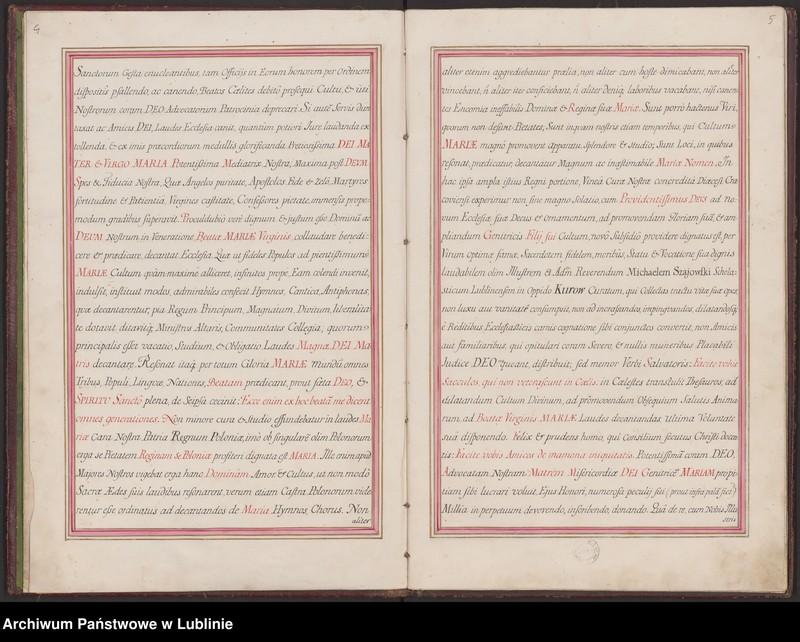 4
Sanctorum Gesta enucleantibus, tam Officijs in Eorum honorem per Ordinem
dispositis psallendo, ac canendo, Beatos Cælites debito prosequi Cultu, & uti
Nostrorum coram DEO Advocatorum Patrocinia deprecari. Si autē Servis dun
taxat ac Amicis DEI, Laudes Ecclesia canit, quantum potiori Jure laudanda ex
tollenda, & ex imis præcordiorum medullis glorificanda Potentissima DEI MA
TER & VIRGO MARIA Potentissima Mediatrix Nostra, Maxima post DEUM
Spes & Fiducia Nostra, Quæ Angelos puritate, Apostolos Fide & Zelō, Martyres
fortitudine & Patientiā, Virgines castitate, Confessores pietate, immensis prope
modum gradibus superavit. Proculdubiò verè dignum & justum esse Dominū ac
DEUM Nostrum in Veneratione Beatæ MARIÆ Virginis collaudare, benedi:
cere & prædicare, decantat Ecclesia. Quæ ut fideles Populos ad pientissimum
MARIÆ Cultum quàm maximè alliceret, infinitos prope, Eam colendi invenit,
indulsit, instituit modos, admirabiles confecit Hymnos, Cantica, Antiphonas,
quæ decantarentur, pia Regum Principum, Magnatum, Divitum, liberalita
te dotavit, ditavitq; Ministros Altaris, Communitates Collegia, quorum
principalis esset vacatio, Studium, & Obligatio Laudes Magnæ DEI Ma
tris decantare. Resonat itaq; per totum Gloria MARIÆ mundū, omnes
Tribus, Populi, Linguæ, Nationes, Beatam prædicant, prout fœta DEO, &
SPIRITU Sanctô plena, de Seipsa cecinit: Ecce enim ex hoc beatā me dicent
omnes generationes. Non minore cura & Studio effundebatur in laudes Ma
riæ Cara Nostra Patria Regnum Poloniæ, imò ob singularē olim Polonorum
erga se Pietatem Reginam se Poloniæ profiteri dignata est MARIA. Ille enim apud
Majores Nostros vigebat erga hanc Dominam Amor & Cultus, ut non modò
Sacræ Ædes suis laudibus resonarent, verum etiam Castra Polonorum vide
rentur esse ordinatus ad decantandos de Maria Hymnos, Chorus. Non
aliter
5
aliter etenim aggrediebantur prælia, non aliter cum hoste dimicabant, non aliter
vincebant, ñ aliter ites conficiebant, ñ aliter deniq; laboribus vacabant, nisi canen
tes Encomia ineffabilis Dominæ & Reginæ suæ Mariæ. Sunt porrò hactenus Viri,
quorum non desunt Pietates, Sunt inquam nostris etiam temporibus, qui Cultum
MARIÆ magno promovent apparatu, splendore & studio; Sunt Loci, in quibus
resonat, prædicatur, decantatur Magnum ac inæstimabile Mariæ Nomen. In
hac ipsa ampla istius Regni portione, Vinea Curæ Nostræ concreditâ Diæcesi Cra
coviensi experimur non sine magno solatio, cum Providentissimus DEUS ad no
vum Ecclesiæ suæ Decus & ornamentum, ad promovendam Gloriam suā, & am
pliandum Genitricis Filij sui Cultum, novô Subsidiô providere dignatus est, per
Virum Optimæ famæ, Sacerdotem fidelem, moribus, Statu & Vocatione sua dignis
laudabilem olim Illustrem & Adm Reverendum Michaelem Szajowski Schola:
sticum Lublinensem in Oppido Kurow Curatum, qui Collectas tractu vitæ suæ opes,
non luxu aut vanitate consumpsit, non ad incrassandos, impinguandos, dilatandosq;
è Reditibus Ecclesiasticis carnis cognatione sibi conjunctos convertit, non Amicis
aut familiaribus, qui opitulari coram Severo, & nullis muneribus Placabili
Judice DEO nequeunt, distribuit; sed memor Verbi Salvatoris: Facite vobis
Sacculos, qui non veterascunt in Cœlis: in Cœlestes transtulit Thesauros, ad
dilatandum Cultum Divinum, ad promovendum Obsequium Salutis Anima
rum, ad Beatæ Virginis MARIÆ Laudes decantandas, ultima Voluntate
suâ disponendo. Felix & prudens homo, qui Consilium secutus Christi docen
tis: Facite vobis Amicos de mamona iniquitatis, Potentissimā coram DEO,
Advocatam Nostram Matrem Misericordiæ DEI Genitricē MARIAM propi
tiam sibi lucrari voluit, Ejus Honori, numerosa peculij sui (prout infra palā fiet)
Millia in perpetuum devovendo, inscribendo, donando. Quâ de re, cum Nobis Illu
stris
Archiwum Państwowe w Lublinie